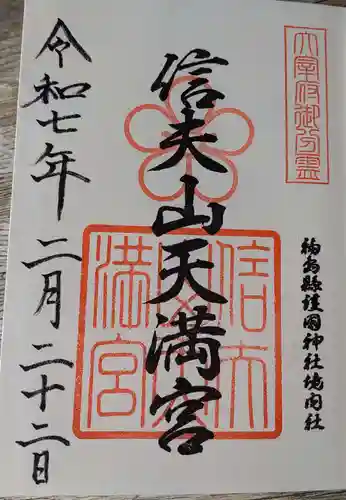 太宰府御分霊
福島縣護國神社境内社
信夫山天満宮
信夫山天満宮
令和七年二月二十二日